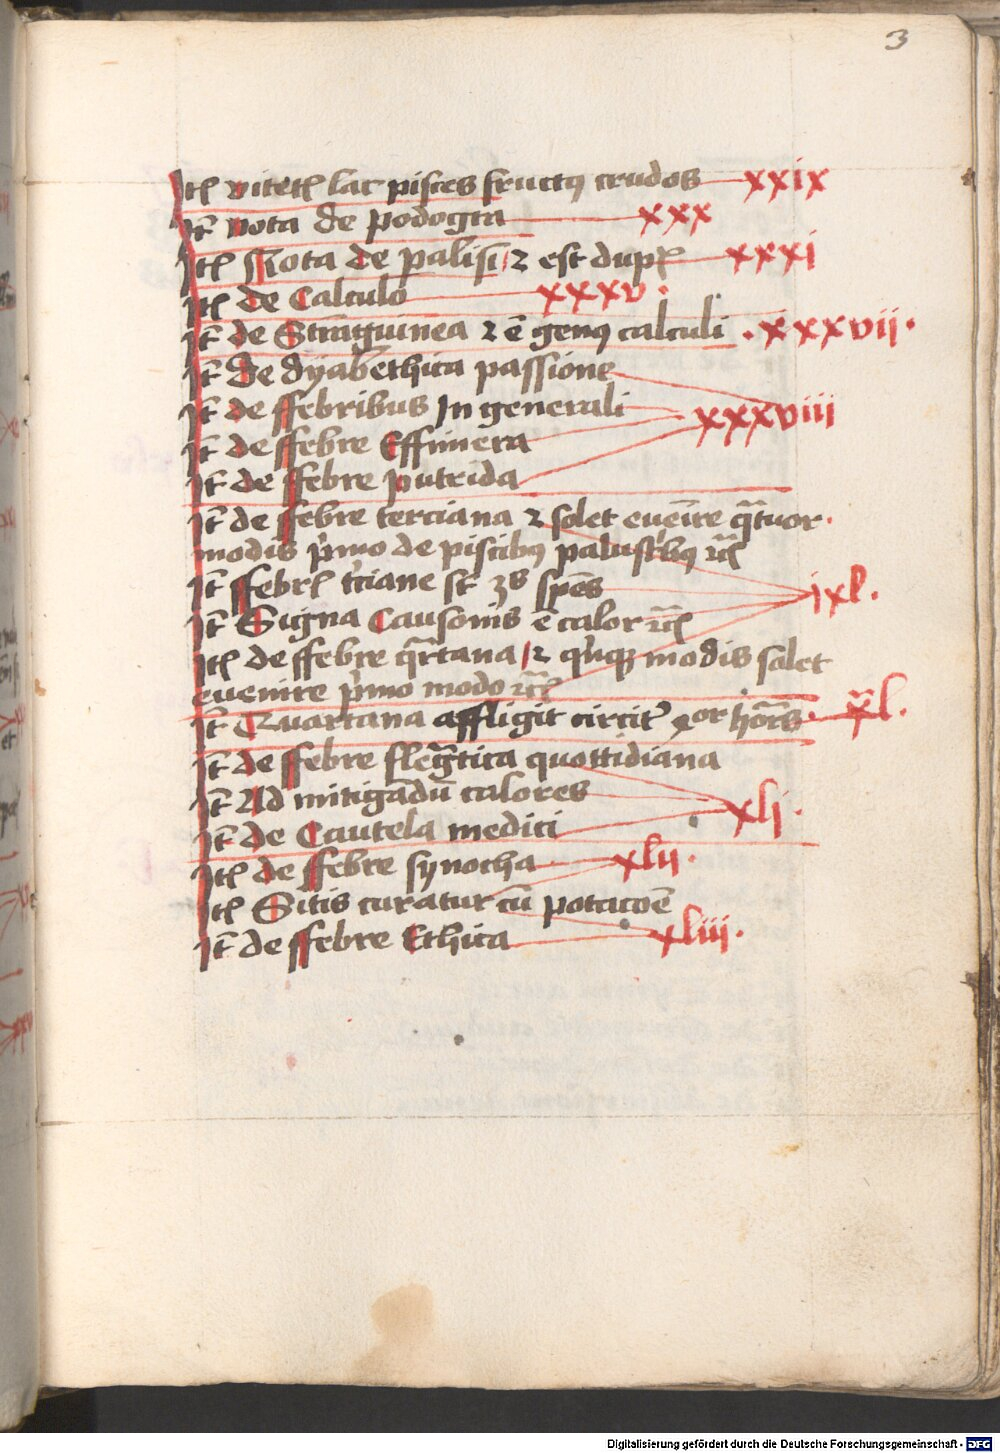 3
Itē vitetē lac pisces fructꝯ crudos xxix
It̄ nota de podogra xxx
Itē Nota de palisī ⁊ est dupl̄ xxxi
Itē de Calculo xxxv.
It̄ de Stranguinea ⁊ ē genꝯ calculi . xxxvii.
It̄ de dyabethica passione
It̄ de ffebribus In generali xxxviii
It̄ de ffebre Effimera
It̄ de ffebre putrida
It̄ de ffebre terciana ⁊ solet eueīre q̄tuor.
modis p̄mo de piscibꝯ palustribꝯ ⁊cē
It̄ ffebrē t̄ciane st̄ 3s sp̄es ixl.
It̄ Signa Causonis ē calor ⁊cē
Itē de ffebre q̄rtana ⁊ q̄nqꝫ modis solet
euenire p̄mo modo ⁊cē
It̄ Quartana affligit circit̄ xor hor̄s. xl.
It̄ de ffebre flegm̄tica quottidiana
It̄ Ad mitigādū calores xli.
It̄ de Cautela medici
Itē de ffebre synocha xlii.
Itē Sitis curatur cū potacōe
It̄ de ffebre Ethica xliii.
Digitalisierung gefördert durch die Deutsche Forschungsgemeinschaft - DFG